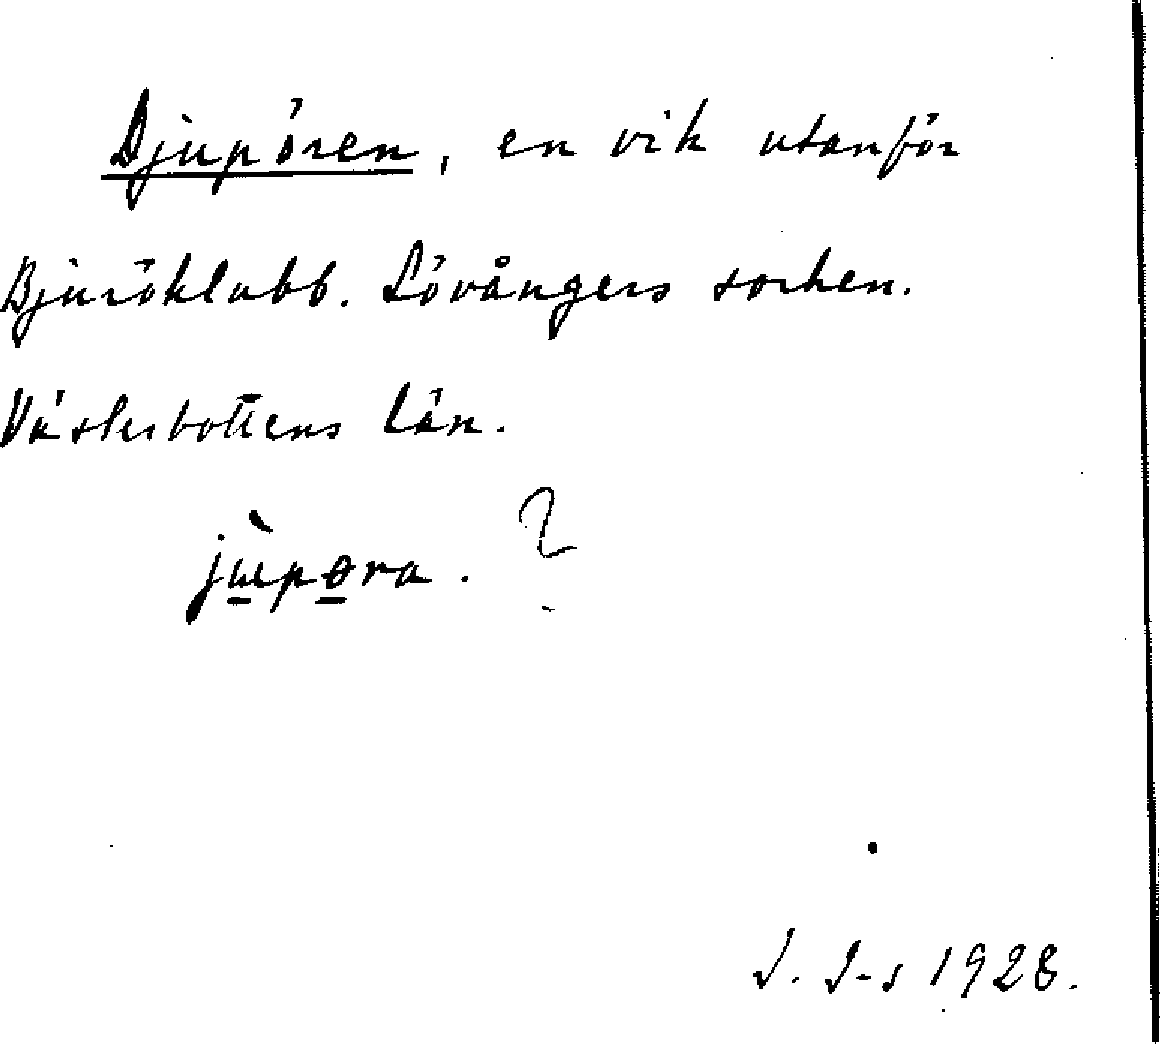 Djupören, en vik utanför
Bjuröklubb. Lövångers socken.
Västerbottens län.
jùpøra. ?
J. J-s 1928.